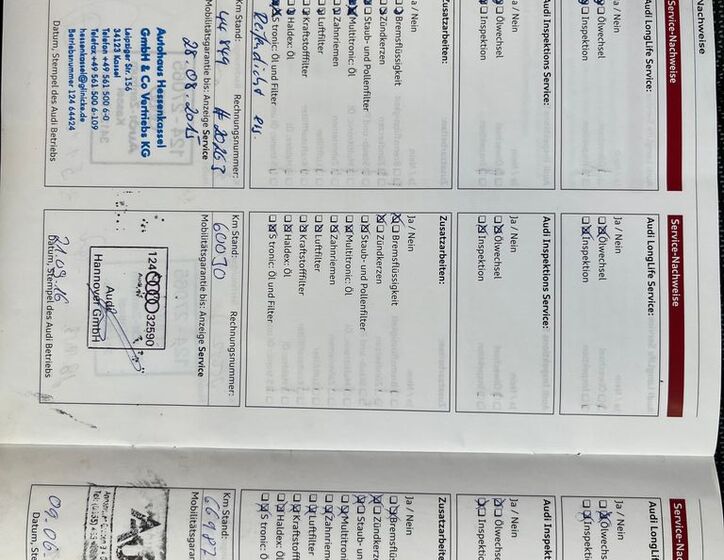 Nachweise
Service-Nachweise
Audi LongLife Service:
Ja / Nein
Ölwechsel
Inspektion
Audi Inspektions Service:
Ja / Nein
Ölwechsel
Inspektion
Zusatzarbeiten:
Ja / Nein
Bremsflüssigkeit
Zündkerzen
Staub- und Pollenfilter
Multitronic: Öl
Zahnriemen
Luftfilter
Kraftstofffilter
Haldex: Öl
S tronic: Öl und Filter
Km Stand:
Rechnungsnummer:
44849 # 20263
Mobilitätsgarantie bis: Anzeige Service
28.08.2015
Autohaus Hessenkassel
GmbH & Co Vertriebs KG
Leipziger Str. 156
34123 Kassel
Telefon +49 561 500 6-0
Telefax +49 561 500 6-109
hessenkassel@glinicke.de
Betriebsnummer 124 64424
Datum, Stempel des Audi Betriebs
Service-Nachweise
Audi LongLife Service:
Ja / Nein
Ölwechsel
Inspektion
Audi Inspektions Service:
Ja / Nein
Ölwechsel
Inspektion
Zusatzarbeiten:
Ja / Nein
Bremsflüssigkeit
Zündkerzen
Staub- und Pollenfilter
Multitronic: Öl
Zahnriemen
Luftfilter
Kraftstofffilter
Haldex: Öl
S tronic: Öl und Filter
Km Stand:
Rechnungsnummer:
Mobilitätsgarantie bis: Anzeige Service
124 32590
Audi
Hannover GmbH
21.09.16
Datum, Stempel des Audi Betriebs
Service-Nach
Audi LongL
Ja / Nein
Ölwechs
Inspekti
Audi Inspe
Ja / Nein
Ölwechs
Inspekti
Zusatzarbei
Ja / Nein
Bremsflü
Zündkerz
Staub- un
Multitron
Zahnriem
Luftfilter
Kraftstoff
Haldex: Ö
S tronic: Ö
Km Stand:
66982
Mobilitätsgara
09.06
Datum, Ste